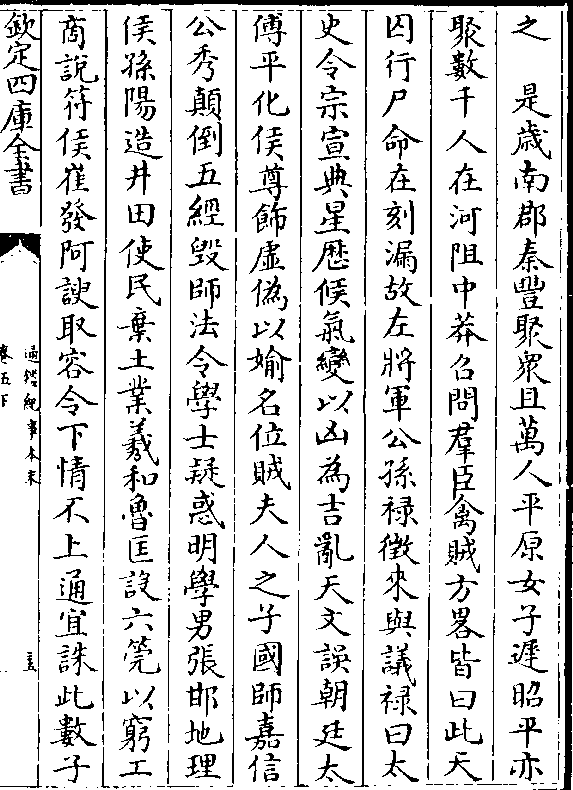 之　是歳南郡秦豐聚衆且萬人平原女子遲昭平亦
聚數千人在河阻中莽召問羣臣禽賊方畧皆曰此天
囚行尸命在刻漏故左將軍公孫禄徵來與議禄曰太
史令宗宣典星歴候氣變以凶為吉亂天文誤朝廷太
傅平化侯尊飾虚偽以媮名位賊夫人之子國師嘉信
公秀顛倒五經毁師法令學士疑惑明學男張邯地理
侯孫陽造井田使民棄土業羲和魯匡設六筦以窮工
商說符侯崔發阿諛取容令下情不上通宜誅此數子
欽定四庫全書
通鑑紀事本末
卷五下